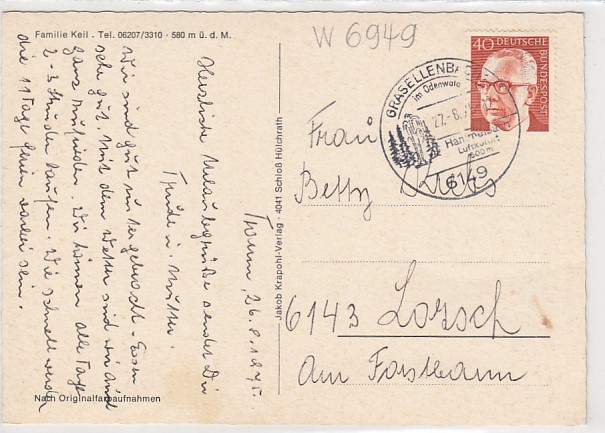 Familie Keil . Tel. 06207/3310 · 580 m ü. d. M.
W 6949
Tromm, 26.8.1975.
Herzliche Urlaubsgrüße sendet Dir
Trude u. Mutter.
Wir sind gut untergebracht. Essen
sehr gut. Mit dem Wetter sind wir auch
ganz zufrieden. Wir können alle Tage
2-3 Stunden laufen. Wie schnell werden
die 11 Tage wieder vorbei sein.
Nach Originalfarbaufnahmen
Jakob Krapohl-Verlag · 4041 Schloß Hülchrath
40 DEUTSCHE
BUNDESPOST
GRASELLENBACH
im Odenwald
27.-8.
Luftkurort
6149
Frau
Betty
6143 Lorsch
Am Forstbann